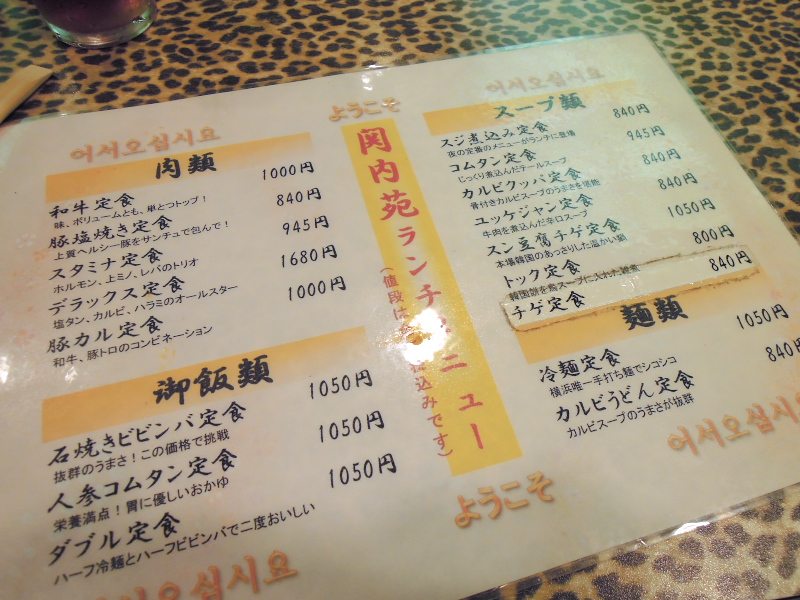 어서오십시요
肉類
和牛定食 1000円
味、ボリュームとも、単とつトップ!
豚塩焼き定食 840円
上質ヘルシー豚をサンチュで包んで!
スタミナ定食 945円
ホルモン、上ミノ、レバのトリオ
デラックス定食 1680円
塩タン、カルビ、ハラミのオールスター
豚カル定食 1000円
和牛、豚トロのコンビネーション
御飯類
石焼きビビンバ定食 1050円
抜群のうまさ!この価格で挑戦
人参コムタン定食 1050円
栄養満点!胃に優しいおかゆ
ダブル定食 1050円
ハーフ冷麺とハーフビビンバで二度おいしい
어서오십시요
ようこそ
関内苑ランチメニュー
(値段は 込みです)
ようこそ
어서오십시요
スープ類
スジ煮込み定食 840円
夜の定番のメニューがランチに登場
コムタン定食 945円
じっくり煮込んだテールスープ
カルビクッパ定食 840円
骨付きカルビスープのうまさを堪能
ユッケジャン定食 840円
牛肉を煮込んだ辛口スープ
スン豆腐チゲ定食 1050円
本場韓国のあっさりした温かい鍋
トック定食 800円
韓国餅を鳥スープに入れた雑煮
チゲ定食 840円
麺類
冷麺定食 1050円
横浜唯一手打ち麺でシコシコ
カルビうどん定食 840円
カルビスープのうまさが抜群
어서오십시요